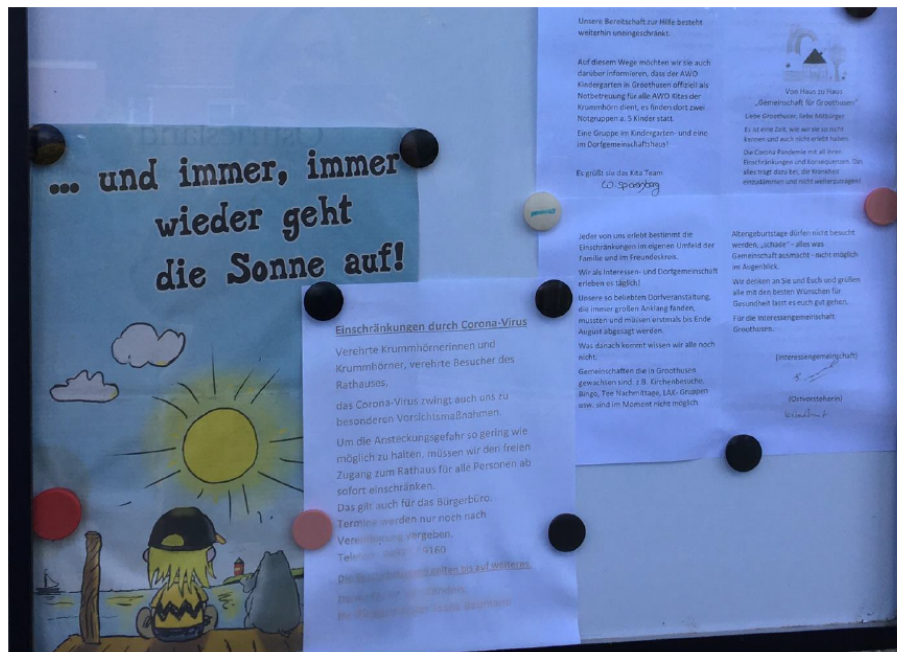 ... und immer, immer
wieder geht
die Sonne auf!
Einschränkungen durch Corona-Virus
Verehrte Krummhörnerinnen und
Krummhörner, verehrte Besucher des
Rathauses,
das Corona-Virus zwingt auch uns zu
besonderen Vorsichtsmaßnahmen.
Um die Ansteckungsgefahr so gering wie
möglich zu halten, müssen wir den freien
Zugang zum Rathaus für alle Personen ab
sofort einschränken.
Das gilt auch für das Bürgerbüro.
Termine werden nur noch nach
Vereinbarung vergeben.
gelten bis auf weiteres
Unsere Bereitschaft zur Hilfe besteht
weiterhin uneingeschränkt.
Auf diesem Wege möchten wir sie auch
darüber informieren, dass der AWO
Kindergarten in Groothusen offiziell als
Notbetreuung für alle AWO Kitas der
Krummhörn dient, es finden dort zwei
Notgruppen a. 5 Kinder statt.
Eine Gruppe im Kindergarten- und eine
im Dorfgemeinschaftshaus!
Es grüßt sie das Kita Team
Von Haus zu Haus
„Gemeinschaft für Groothusen"
Liebe Groothuser, liebe Mitbürger
Es ist eine Zeit, wie wir sie so nicht
kennen und auch nicht erlebt haben.
Die Corona Pandemie mit all ihren
Einschränkungen und Konsequenzen. Das
alles trägt dazu bei, die Krankheit
einzudämmen und nicht weiterzutragen!
Jeder von uns erlebt bestimmt die
Einschränkungen im eigenen Umfeld der
Familie und im Freundeskreis.
Wir als Interessen- und Dorfgemeinschaft
erleben es täglich!
Unsere so beliebten Dorfveranstaltung,
die immer großen Anklang fanden,
mussten und müssen erstmals bis Ende
August abgesagt werden.
Was danach kommt wissen wir alle noch
nicht.
Gemeinschaften die in Groothusen
gewachsen sind, z.B. Kirchenbesuche,
Bingo, Tee Nachmittage, LAK- Gruppen
usw. sind im Moment nicht möglich.
Altergeburtstage dürfen nicht besucht
werden, „schade" - alles was
Gemeinschaft ausmacht - nicht möglich
im Augenblick.
Wir denken an Sie und Euch und grüßen
alle mit den besten Wünschen für
Gesundheit lasst es euch gut gehen.
Für die Interessengemeinschaft
Groothusen.
(Interessengemeinschaft)
(Ortvorsteherin)